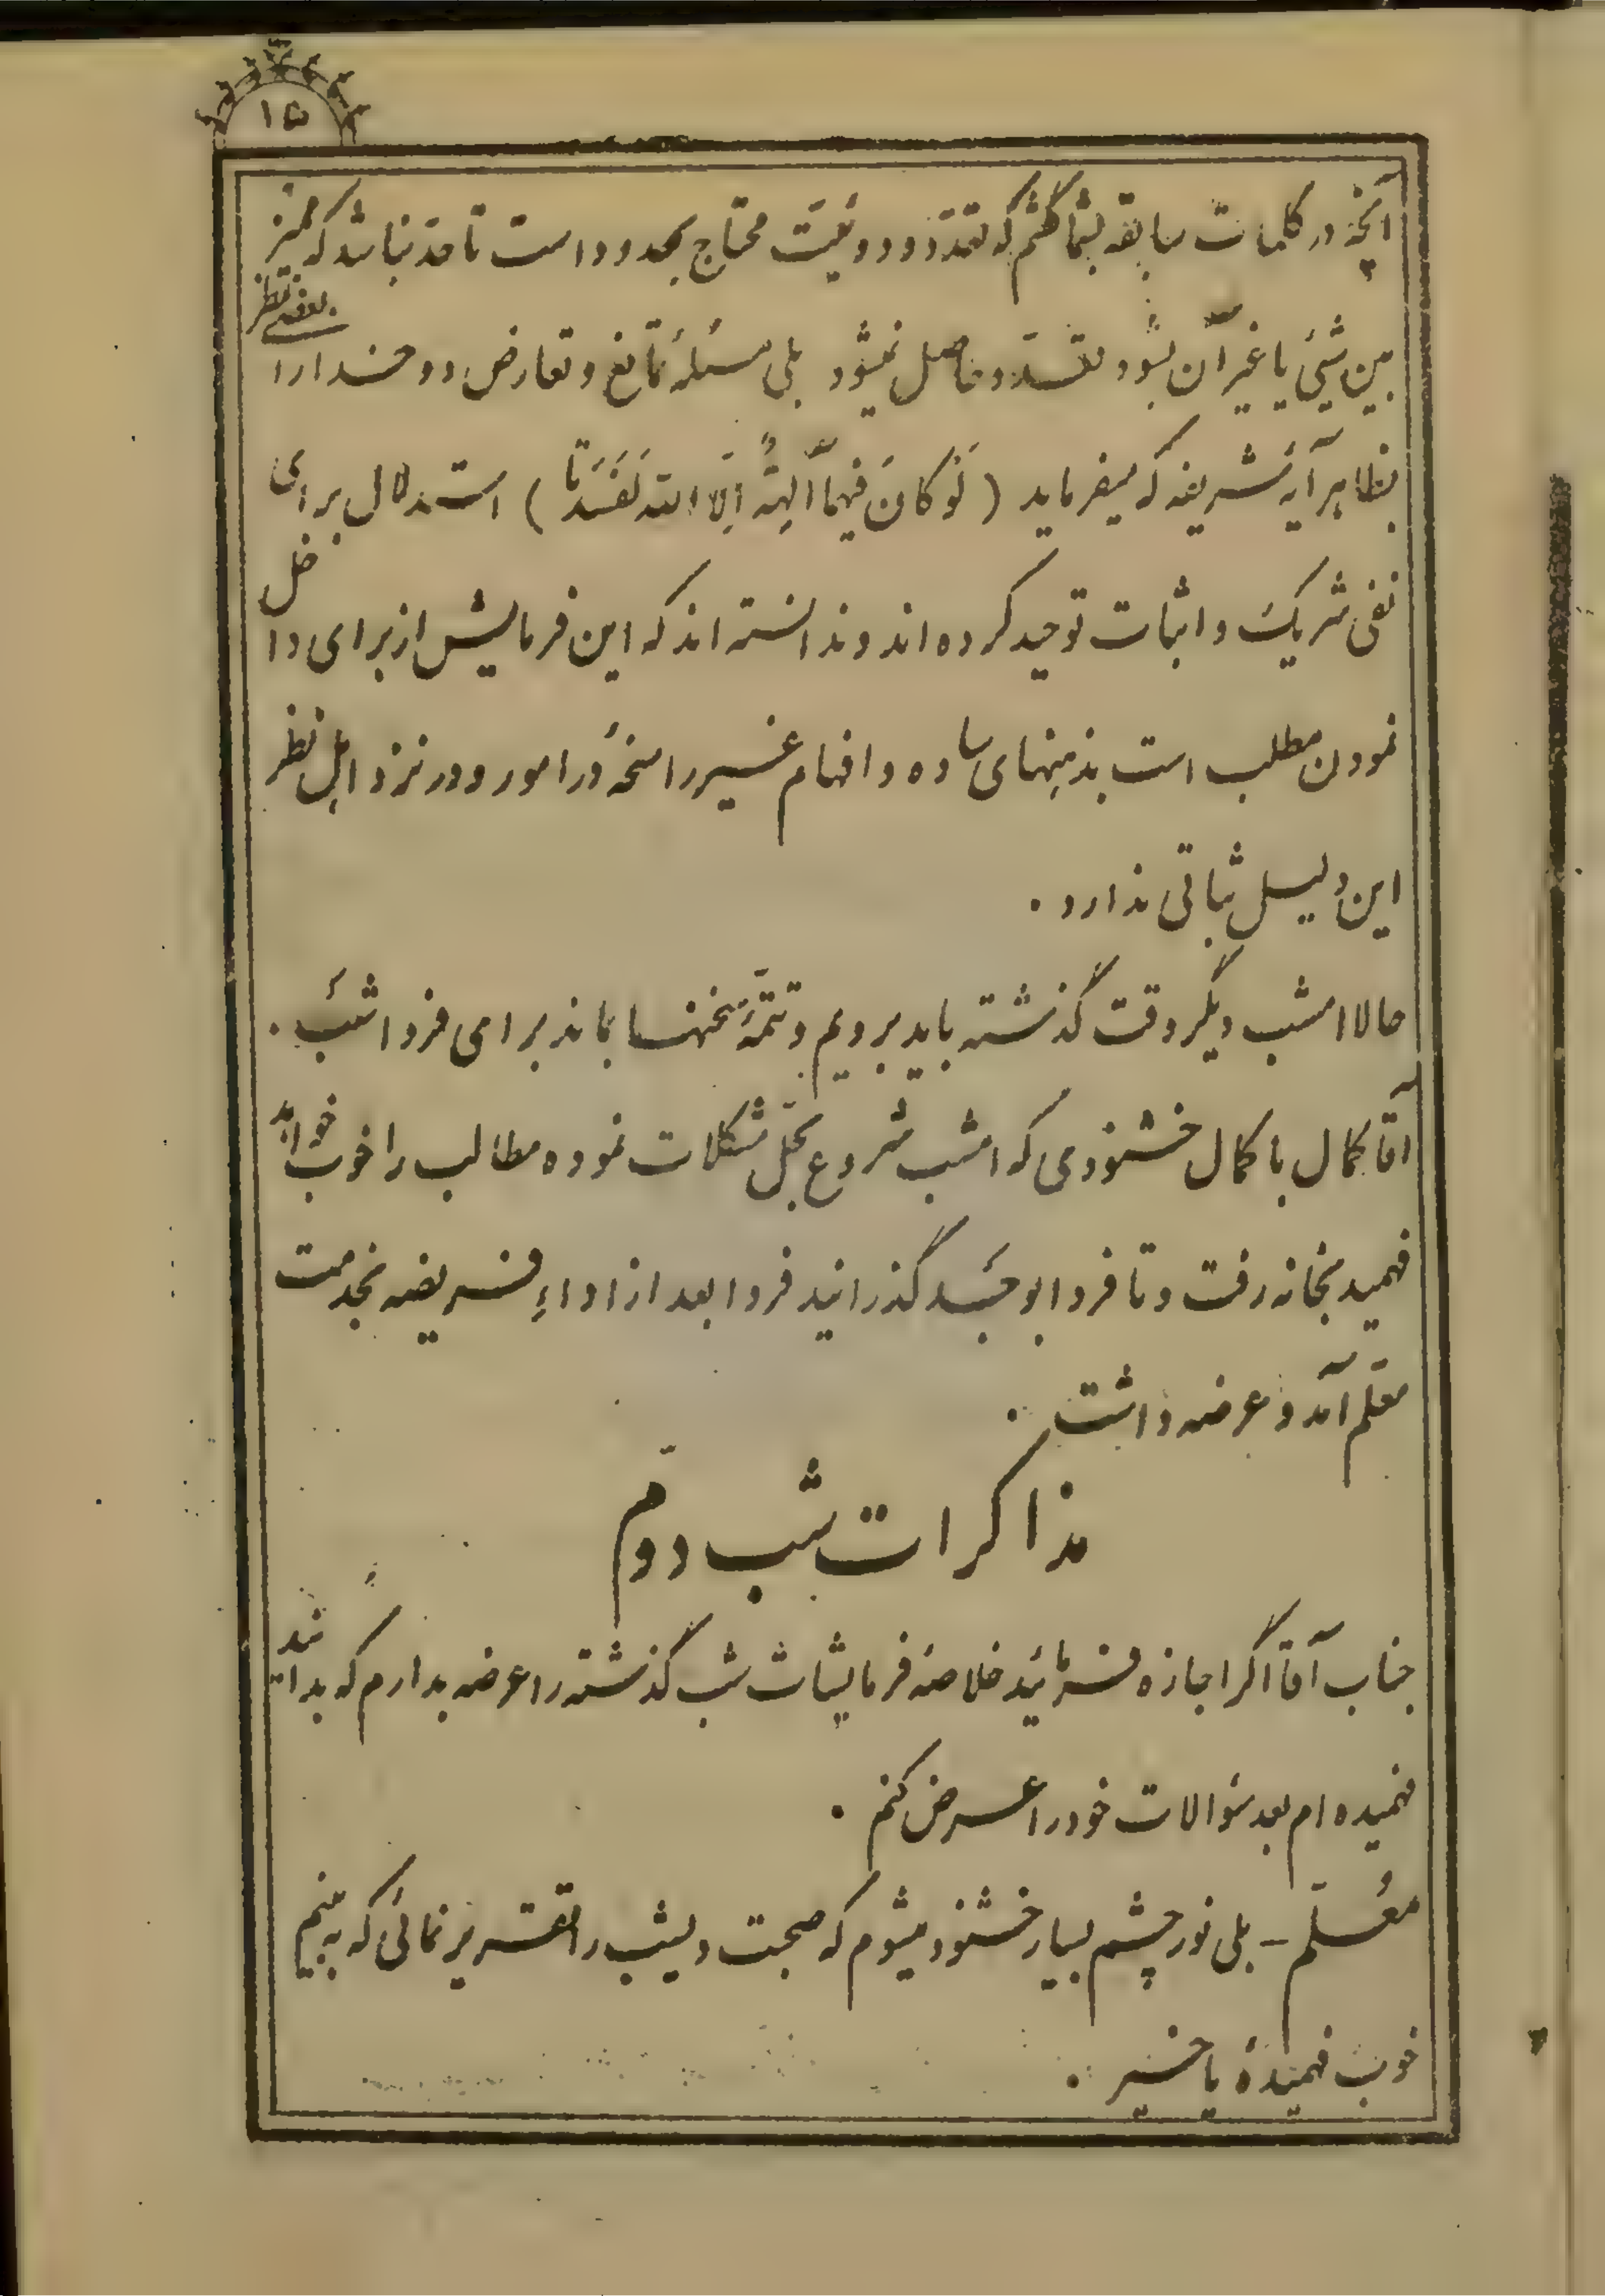 ۱۵
آنچه در کلمات سابقه بشما گفتم که تعدّد و دوئیّت محتاج بحدود است تا حدّ نباشد که ممیّز
بین شیئی یا غیر آن بشود تعدّد حاصل نمیشود بلی مسئلهٔ تمانع و تعارض دو خدا را بعضی نظر
بظاهر آیهٔ شریفه که میفرماید (لَوْ کانَ فیهِما آلِهَةٌ اِلَّا اللّه لَفَسَدَتا) استدلال برای
نفی شریک و اثبات توحید کرده‌اند و ندانسته‌اند که این فرمایش از برای داخل
نمودن مطلب است بذهنهای ساده و افهام غیر راسخهٔ در امور و در نزد اهل نظر
این دلیل ثباتی ندارد .
حالا امشب دیگر وقت گذشته باید برویم و تتمّهٔ سخنها بماند برای فردا شب .
آقا کمال با کمال خشنودی که امشب شروع بحلّ مشکلات نموده مطالب را خوب خواهد
فهمید بخانه رفت و تا فردا بوجد گذرانید فردا بعد از اداءِ فریضه بخدمت
معلّم آمد و عرضه داشت .
مذاکرات شب دوّم
جناب آقا اگر اجازه فرمائید خلاصهٔ فرمایشات شب گذشته را عرضه بدارم که بدانید
فهمیده‌ام بعد سؤالات خود را عرض کنم .
معُلّم – بلی نور چشم بسیار خشنود میشوم که صحبت دیشب را تقریر نمائی که به بینم
خوب فهمیدهٔ یا خیر .